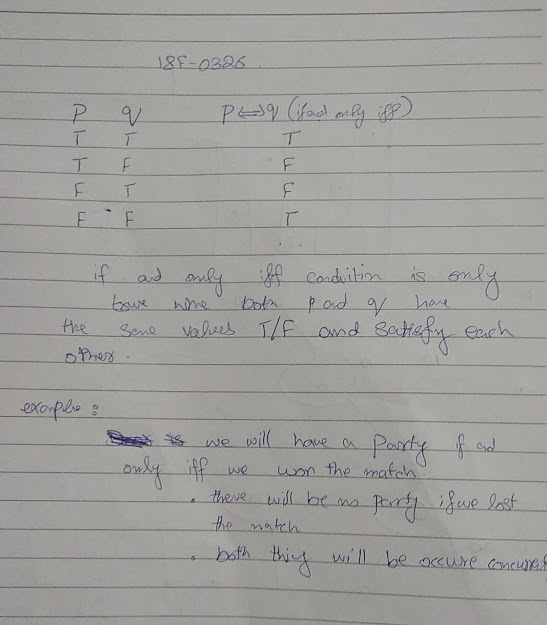 18F-0326
P q P⟺q (if and only iff)
T T T
T F F
F T F
F F T
if and only iff condition is only
towe whe both p ad q have
the same values T/F and satisfy each
other.
example :
we will have a Party if ad
only iff we won the match
. there will be no party if we lost
the match
. both thing will be occure concurret